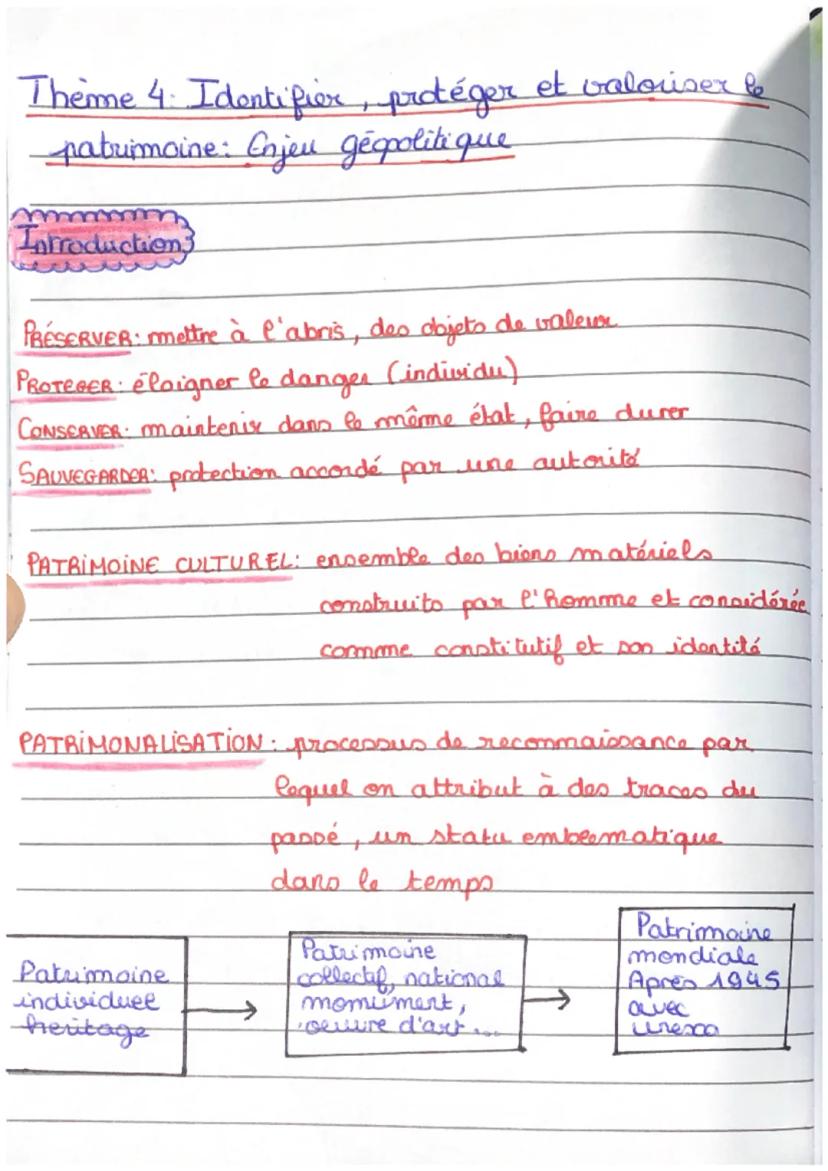 Thème 4: Identifier, protéger et valoriser le
patrimoine: Enjeu géopolitique
Introduction
PRÉSERVER: mettre à l'abris, des objets de valeur
PROTEGER: éloigner le danger (individu)
CONSERVER: maintenir dans le même état, faire durer
SAUVEGARDER: protection accordé par une autorité
PATRIMOINE CULTUREL: ensemble des biens matériels
construits par l'Homme et considérée
comme constitutif et son identité
PATRIMONALISATION: processus de reconnaissance par
lequel on attribut à des traces du
passé, un statu emblematique
dans le temps
Patrimoine
individuel
heritage
Patrimoine
collectif, national
monument,
oeuvre d'art...
Patrimoine
mondiale
Après 1945
avec
unesco